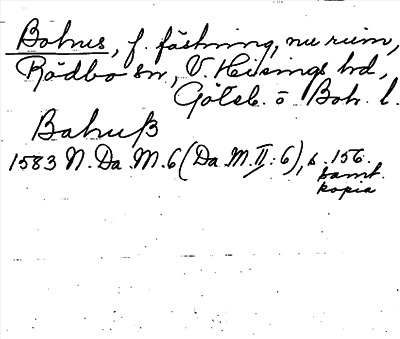 Bohus, f. fästning, nu ruin,
Rödbo sn, V. Hisings hd,
Göteb. o Boh. l.
Bahuß
1583 N. Da. M. 6 (Da. M. II: 6), s. 156.
samt.
kopia